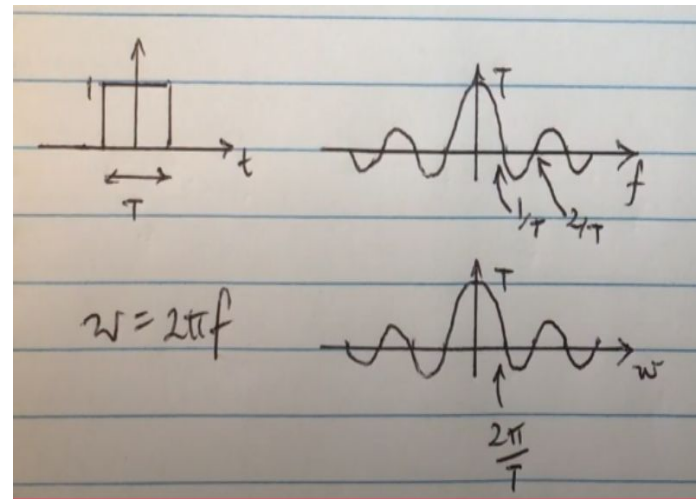 1
t
T
T
f
1/T 2/T
w = 2πf
T
w
2π/T